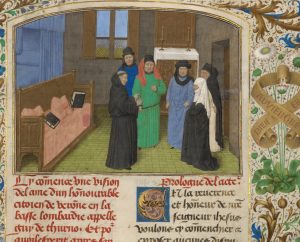 Cy comence vne vision
de lame dun honnourable
citoien de verone en la
basse lombardie appelle
guy de thurno. Et po
Prologue de lacte
A la reverence
et honeur de
seigneur ihesus
Voulons cy comencher a